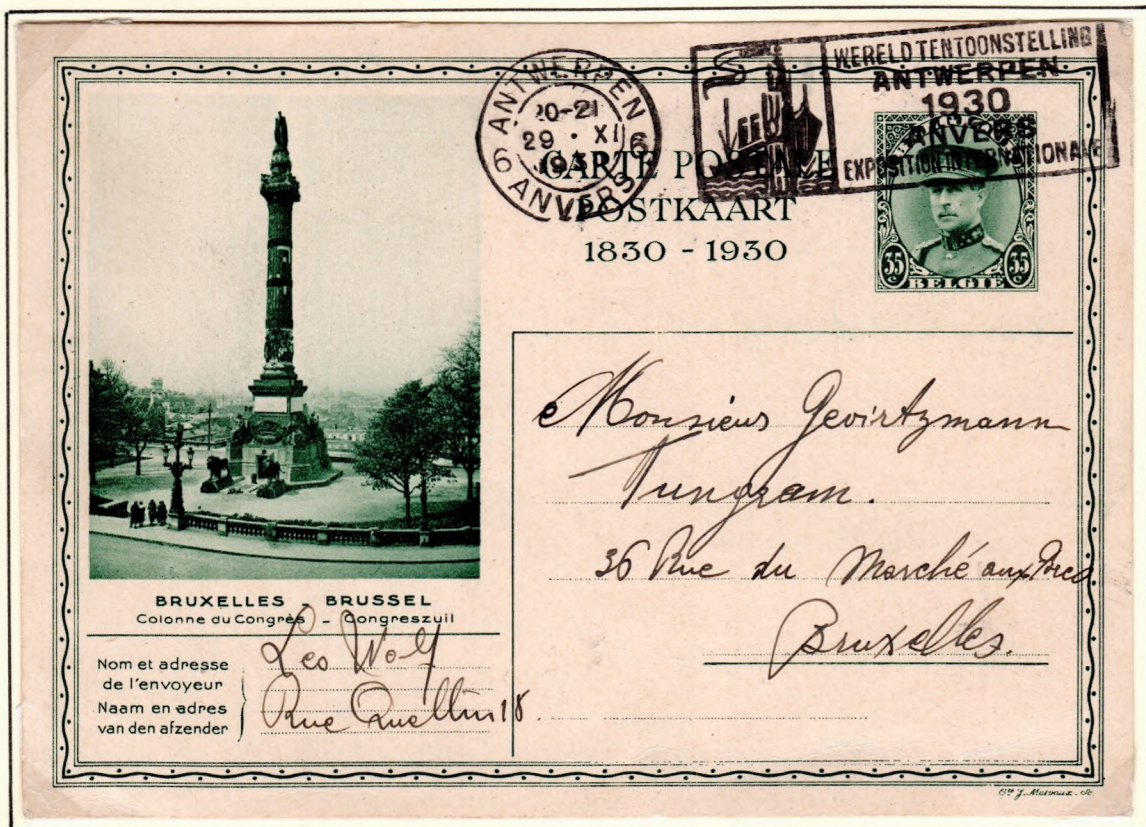 ANTWERPEN
20-21
29 · XI
1930
6 6
ANVERS
WERELDTENTOONSTELLING
ANTWERPEN
1930
ANVERS
EXPOSITION INTERNATIONALE
CARTE POSTALE
POSTKAART
1830 - 1930
35 c 35 c
BELGIE
Monsieur Gevirtzmann
Tungram.
36 Rue du Marché aux Porcs
Bruxelles.
BRUXELLES - BRUSSEL
Colonne du Congrès - Congreszuil
Nom et adresse
de l'envoyeur
Naam en adres
van den afzender
Leo Wolf
Rue Quellin 18.
J. Malvaux